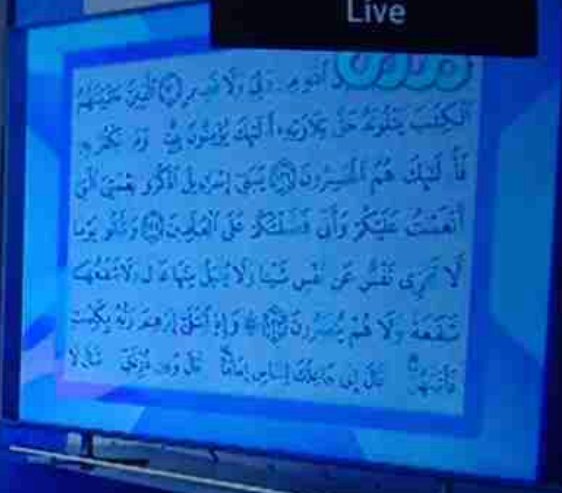 Live
ولي ولا نصير الذين
الكتب يتلونه حق تلاوته أولئك يؤمنون به ومن يكفر به
فأولئك هم الخسرون يبني إسرءيل اذكروا نعمتي التي
أنعمت عليكم وأني فضلتكم على العلمين واتقوا يوما
لا تجزي نفس عن نفس شيئا ولا يقبل منها عدل ولا تنفعها
شفعة ولا هم ينصرون وإذ ابتلى إبرهم ربه بكلمت
فأتمهن قال إني جاعلك للناس إماما قال ومن ذريتي قال لا